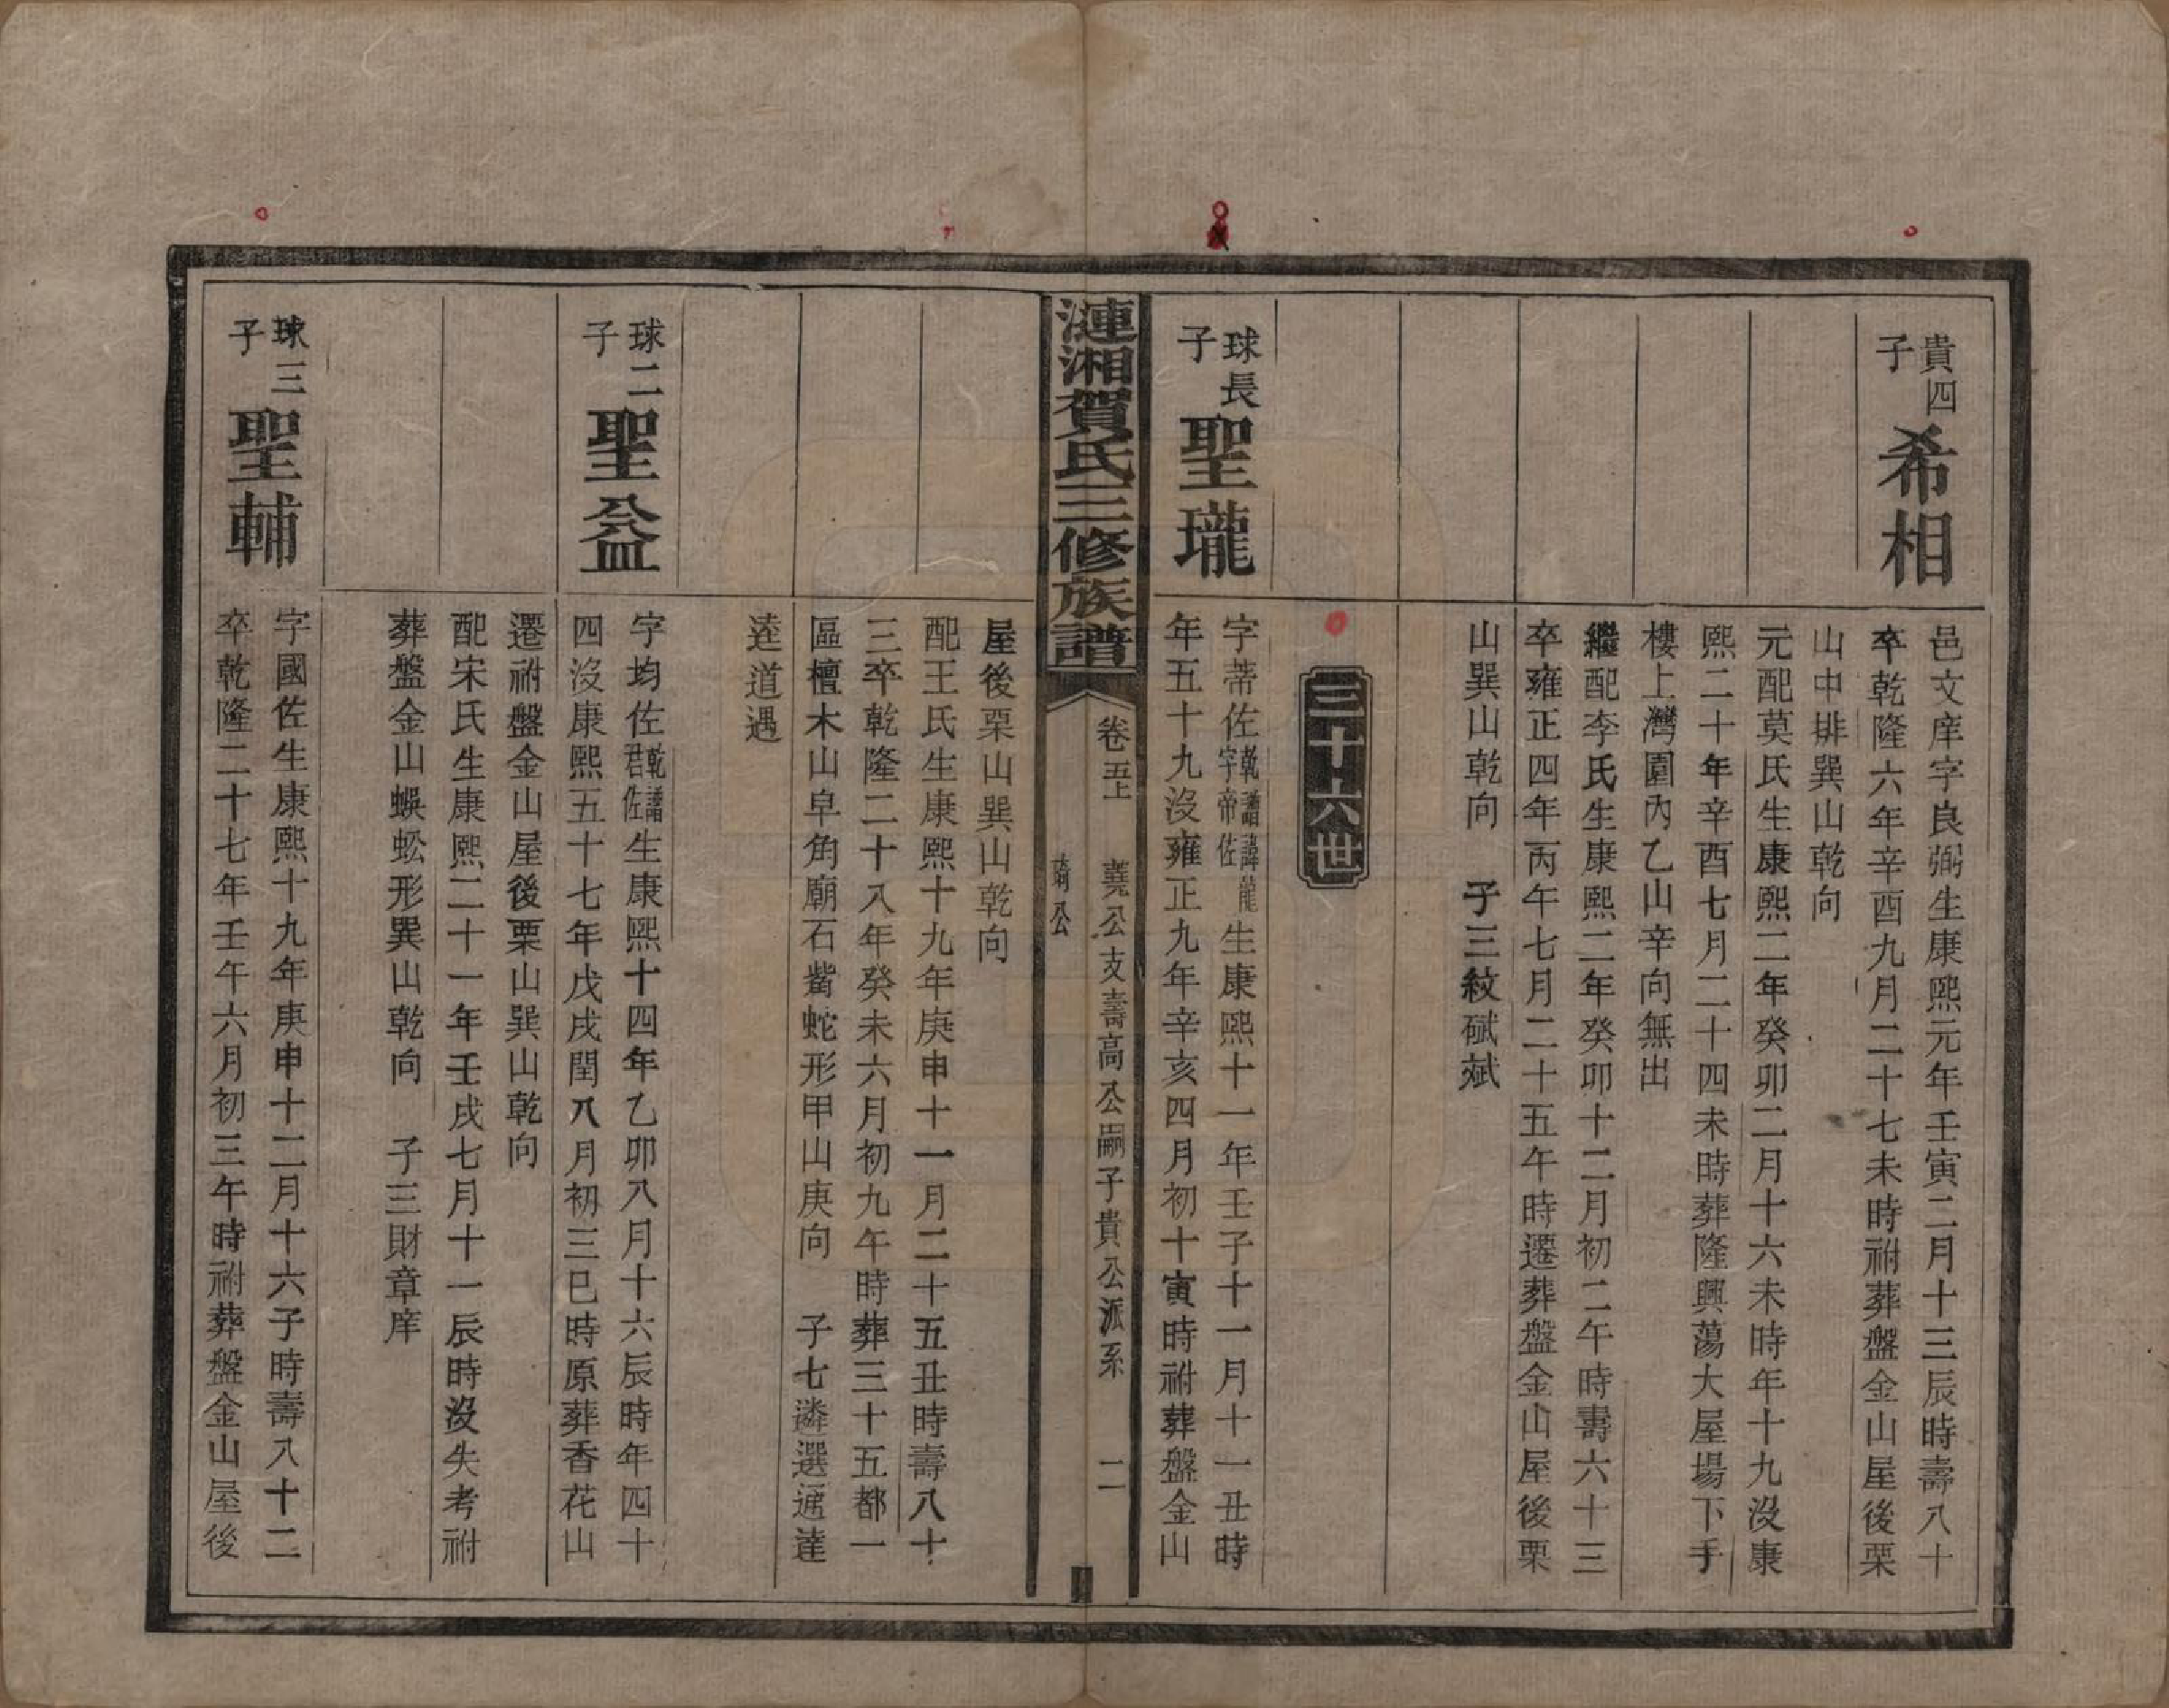 貴四子 希相
邑文庠字良弼生康熙元年壬寅二月十三辰時壽八十
卒乾隆六年辛酉九月二十七未時祔葬盤金山屋後栗
山中排巽山乾向
元配莫氏生康熙二年癸卯二月十六未時年十九沒康
熙二十年辛酉七月二十四未時葬隆興蕩大屋場下手
樓上灣園內乙山辛向無出
繼配李氏生康熙二年癸卯十二月初二午時壽六十三
卒雍正四年丙午七月二十五午時遷葬盤金山屋後栗
山巽山乾向 子三紋碔斌
三十六世
球長子 聖瓏
字蒂佐乾譜諱龍字帝佐生康熙十一年壬子十一月十一丑時
年五十九沒雍正九年辛亥四月初十寅時祔葬盤金山
漣湘賀氏三修族譜
卷五上 堯公支壽高公嗣子貴公派系 二
公
屋後栗山巽山乾向
配王氏生康熙十九年庚申十一月二十五丑時壽八十
三卒乾隆二十八年癸未六月初九午時葬三十五都一
區檀木山皁角廟石觜蛇形甲山庚向 子七遴選適通達
逵道遇
球二子 聖益
字均佐乾譜君佐生康熙十四年乙卯八月十六辰時年四十
四沒康熙五十七年戊戌閏八月初三巳時原葬香花山
遷祔盤金山屋後栗山巽山乾向
配宋氏生康熙二十一年壬戌七月十一辰時沒失考祔
葬盤金山蜈蚣形巽山乾向 子三財章庠
球三子 聖輔
字國佐生康熙十九年庚申十二月十六子時壽八十二
卒乾隆二十七年壬午六月初三午時祔葬盤金山屋後